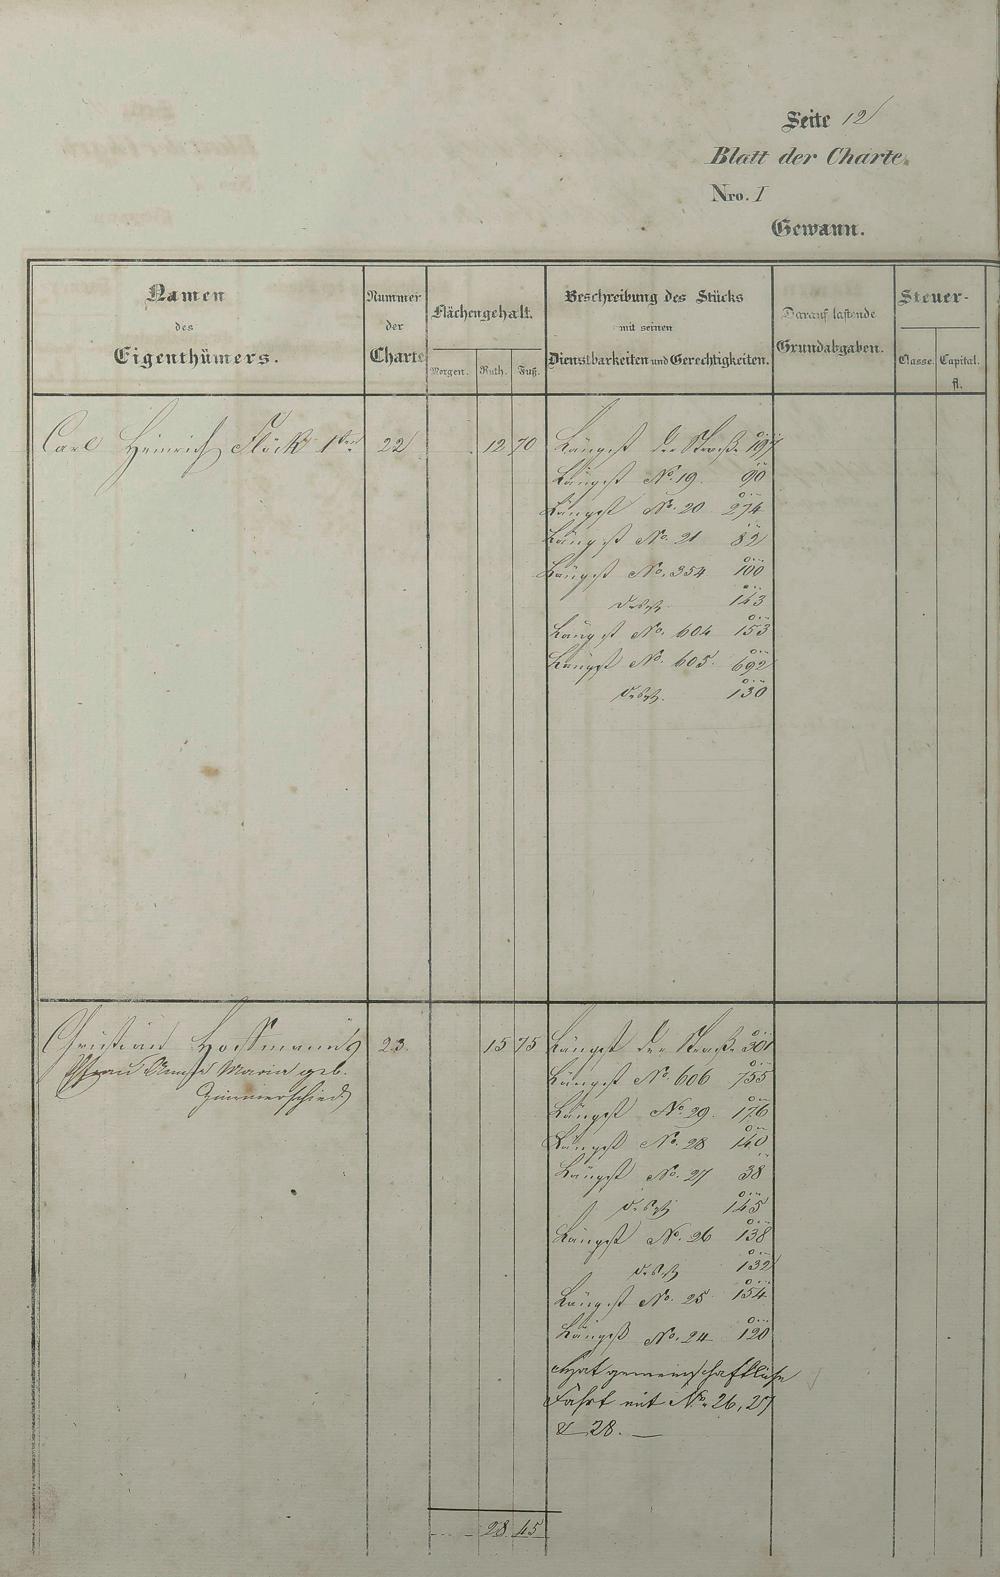 Seite 12
Blatt der Charte
Nro. I
Gewann.
Namen des Eigenthümers.
Nummer der Charte
Flächengehalt.
Morgen. Ruth. Fuß.
Beschreibung des Stücks mit seinen Dienstbarkeiten und Gerechtigkeiten.
Darauf lastende Grundabgaben.
Steuer-
Classe. Capital. fl.
Carl Heinrich Flöck 1ter 22 12 70 Längst der Straße 197
Längst No. 19. 90
Längst No. 20 274
Längst No. 21 82
Längst No. 354 100
143
Längst No. 604 153
Längst No. 605. 692
130
Christian Hoffmann's 23. 15 75 Längst der Straße 301
Frau Anna Maria geb. Längst No. 606 755
Zimmerschied Längst No. 29. 176
Längst No. 28 140
Längst No. 27 38
145
Längst No. 26 138
132
Längst No. 25 154
Längst No. 24 120
Hat gemeinschaftliche
Fahrt mit No. 26, 27
& 28. —
28 45